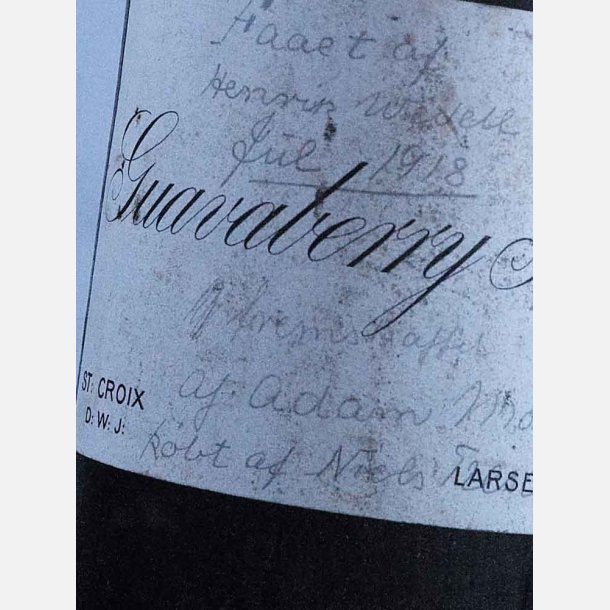 Faaet af
Henrik Wedell
Jul 1918
Guavaberry
af Adam
ST. CROIX
D: W: J:
købt af Niels
LARSE